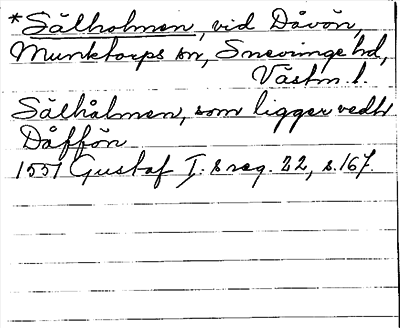 *Sälholmen, vid Dåvön,
Munktorps sn, Snevringe hd,
Västm. l.
Sälhålmen, som ligger vedh
Dåffön
1551 Gustaf I:s reg. 22, s. 167.